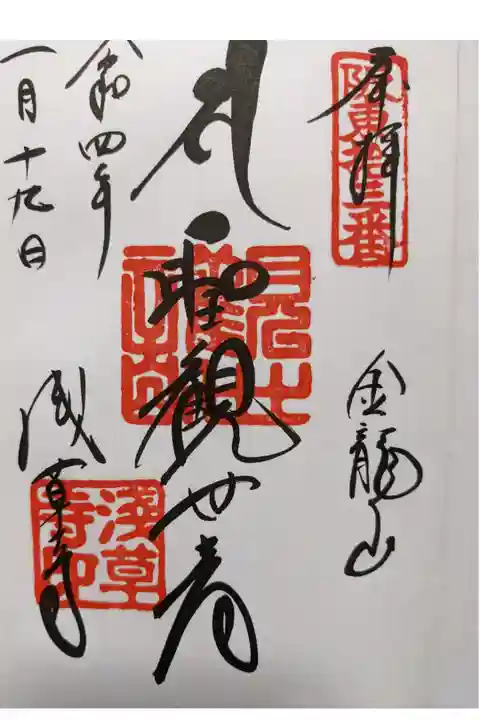 奉拝
坂東拾三番
金龍山
聖観世音
浅草寺
浅草寺印
令四年
一月十九日